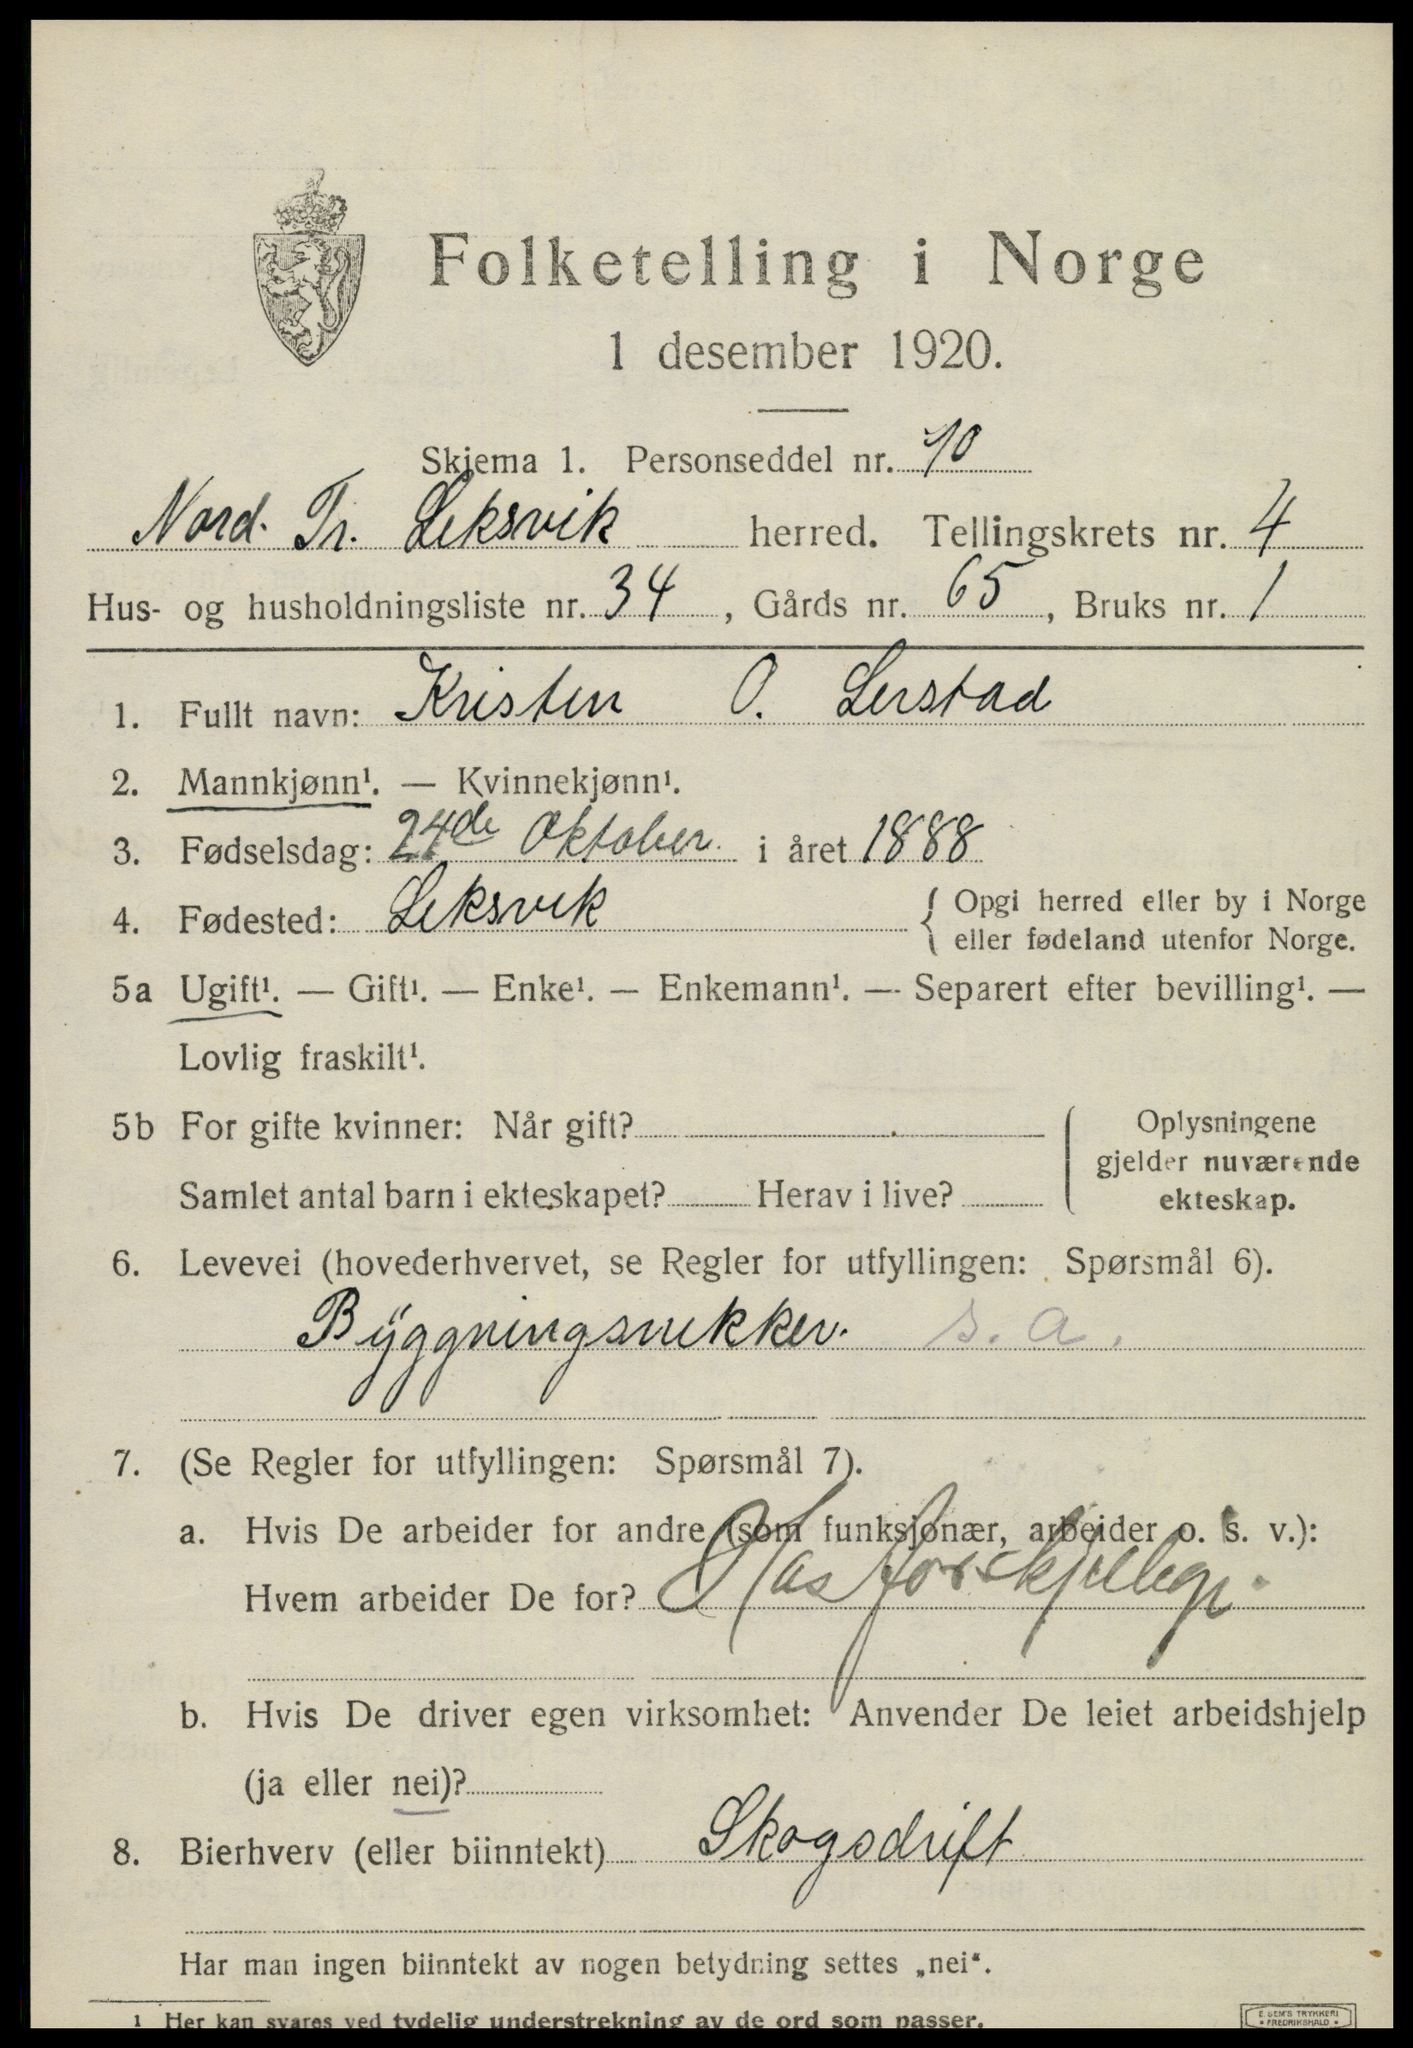 Folketelling i Norge
1 desember 1920.
Skjema 1. Personseddel nr. 10
Nord. Tr. Leksvik herred. Tellingskrets nr. 4
Hus- og husholdningsliste nr. 34, Gårds nr. 65, Bruks nr. 1
1. Fullt navn: Kristen O. Lerstad
2. Mannkjønn¹. — Kvinnekjønn¹.
3. Fødselsdag: 24de Oktober. i året 1888
4. Fødested: Leksvik { Opgi herred eller by i Norge
eller fødeland utenfor Norge.
5a Ugift¹. — Gift¹. — Enke¹. — Enkemann¹. — Separert efter bevilling¹. —
Lovlig fraskilt¹.
5b For gifte kvinner: Når gift?
Samlet antal barn i ekteskapet? Herav i live?
Oplysningene
gjelder nuværende
ekteskap.
6. Levevei (hovederhvervet, se Regler for utfyllingen: Spørsmål 6).
Byggningsnekker. s. a.
7. (Se Regler for utfyllingen: Spørsmål 7).
a. Hvis De arbeider for andre (som funksjonær, arbeider o. s. v.):
Hvem arbeider De for? Hos forskjellige.
b. Hvis De driver egen virksomhet: Anvender De leiet arbeidshjelp
(ja eller nei)?
8. Bierhverv (eller biinntekt) Skogsdrift
Har man ingen biinntekt av nogen betydning settes „nei“.
¹ Her kan svares ved tydelig understrekning av de ord som passer.
E. SEM'S TRYKKERI
• FREDRIKSHALD •